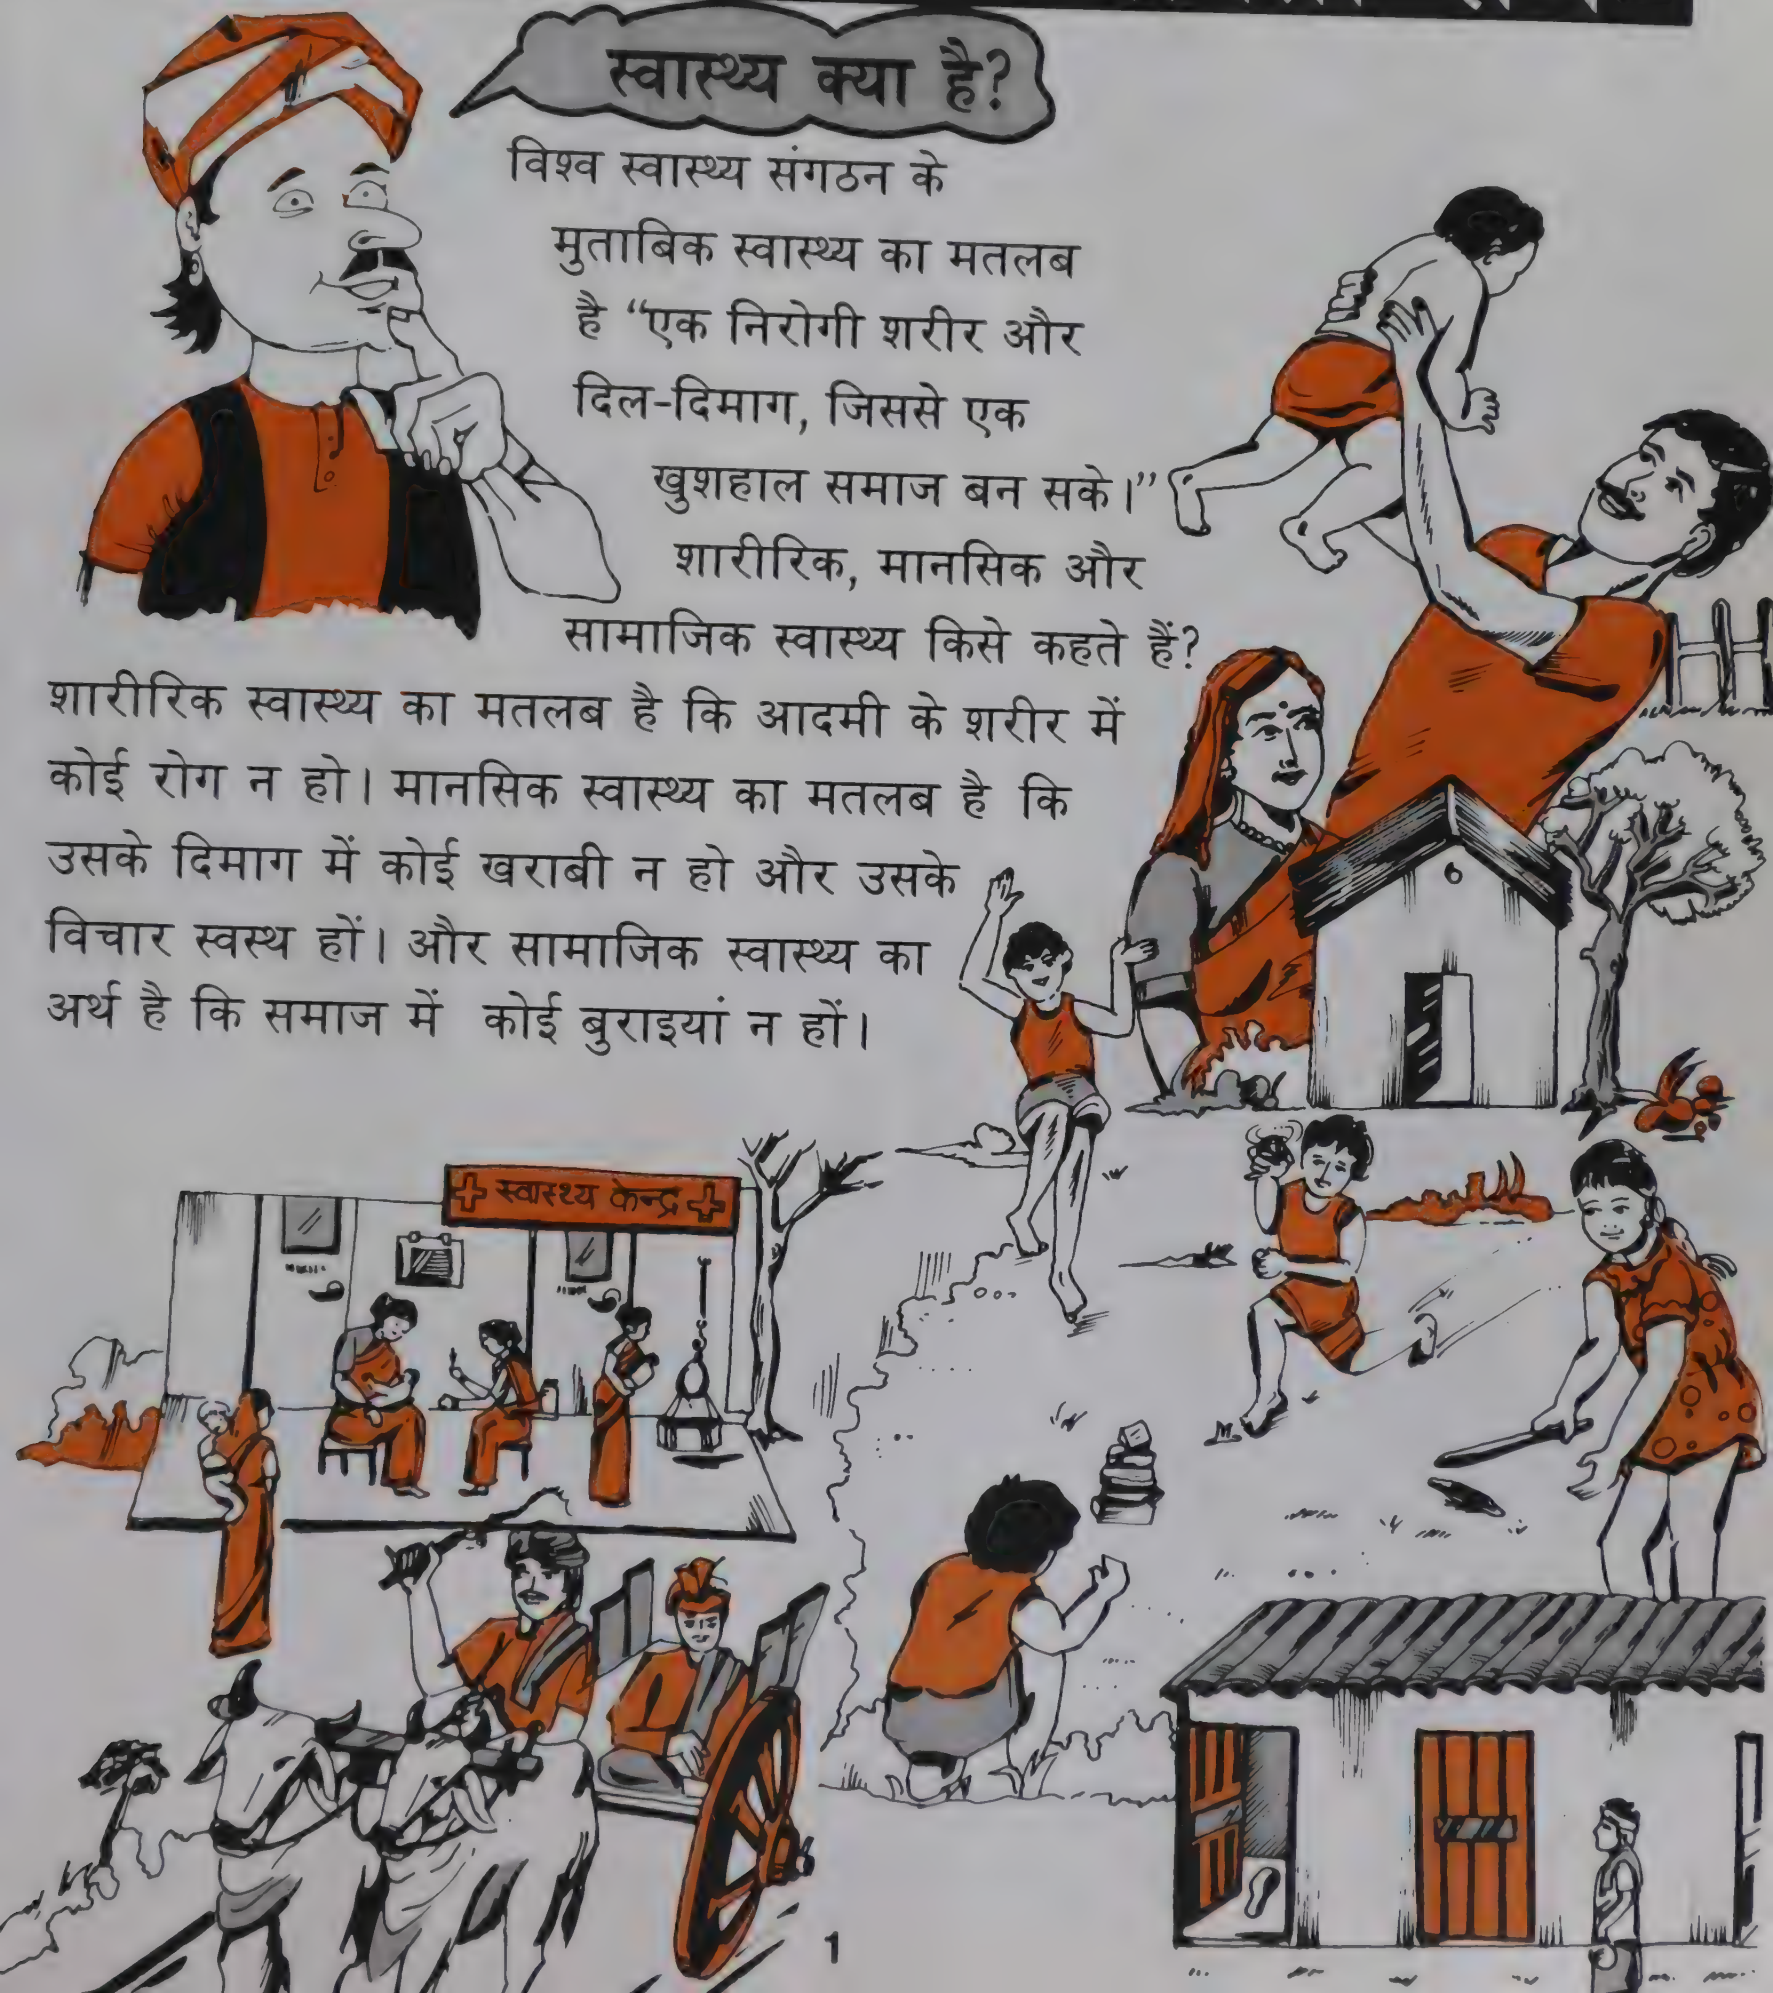 स्वास्थ्य क्या है?
विश्व स्वास्थ्य संगठन के
मुताबिक स्वास्थ्य का मतलब
है “एक निरोगी शरीर और
दिल-दिमाग, जिससे एक
खुशहाल समाज बन सके।”
शारीरिक, मानसिक और
सामाजिक स्वास्थ्य किसे कहते हैं?
शारीरिक स्वास्थ्य का मतलब है कि आदमी के शरीर में
कोई रोग न हो। मानसिक स्वास्थ्य का मतलब है कि
उसके दिमाग में कोई खराबी न हो और उसके
विचार स्वस्थ हों। और सामाजिक स्वास्थ्य का
अर्थ है कि समाज में कोई बुराइयां न हों।
स्वास्थ्य केन्द्र
1